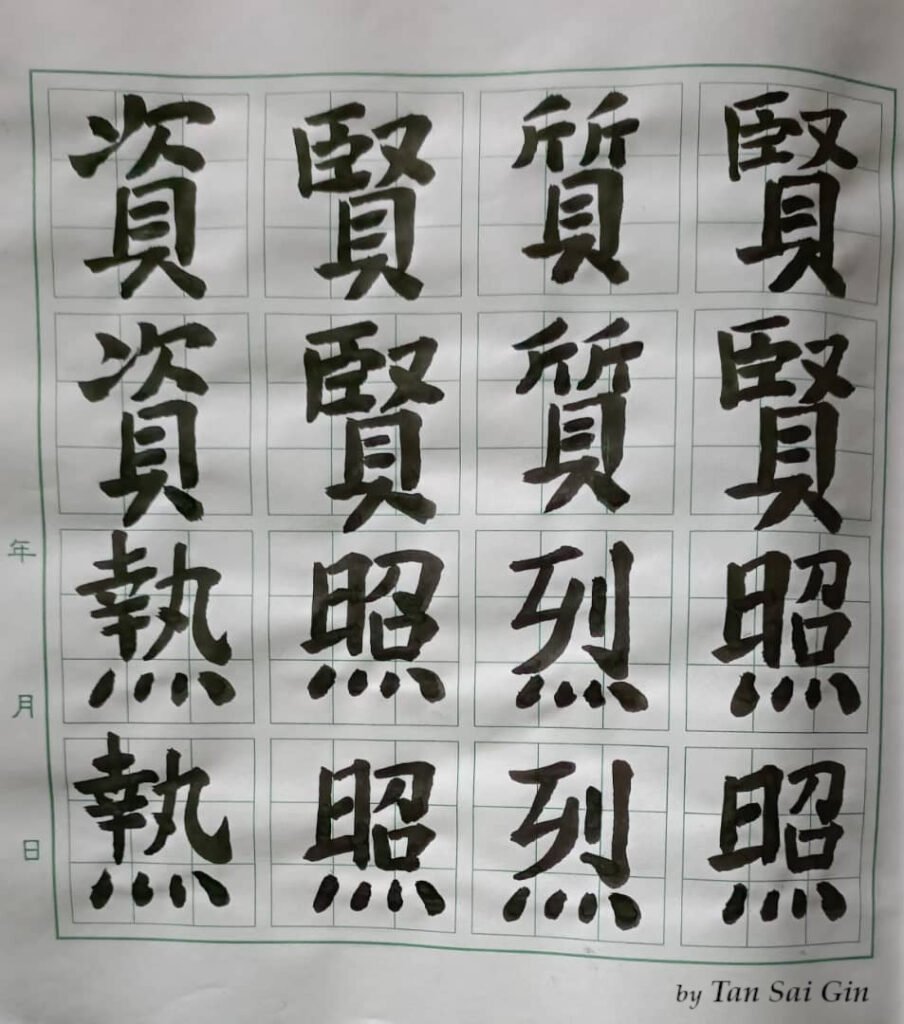 賢賢照照
質質烈烈
賢賢照照
資資熱熱
年月日
by Tan Sai Gin